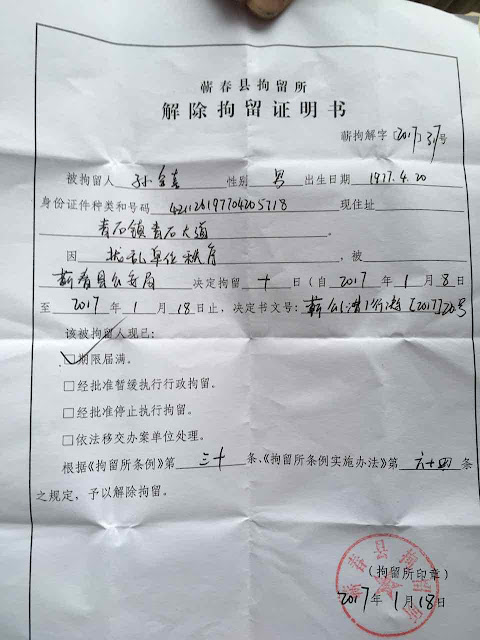 蕲春县拘留所
解除拘留证明书
蕲拘解字〔2017〕37号
被拘留人 孙 性别 男 出生日期 1977.4.20
身份证件种类和号码 421126197704205718 现住址
青石镇青石大道
因 扰乱单位秩序 被
蕲春县公安局 决定拘留 十 日（自 2017 年 1 月 8 日
至 2017 年 1 月 18 日止，决定书文号：蕲公（ ）行 [2017] 号
该被拘留人现已：
☑期限届满。
□经批准暂缓执行行政拘留。
□经批准停止执行拘留。
□依法移交办案单位处理。
根据《拘留所条例》第 三十 条、《拘留所条例实施办法》第 六十四 条
之规定，予以解除拘留。
蕲春县拘留所
（拘留所印章）
2017年 1月 18日